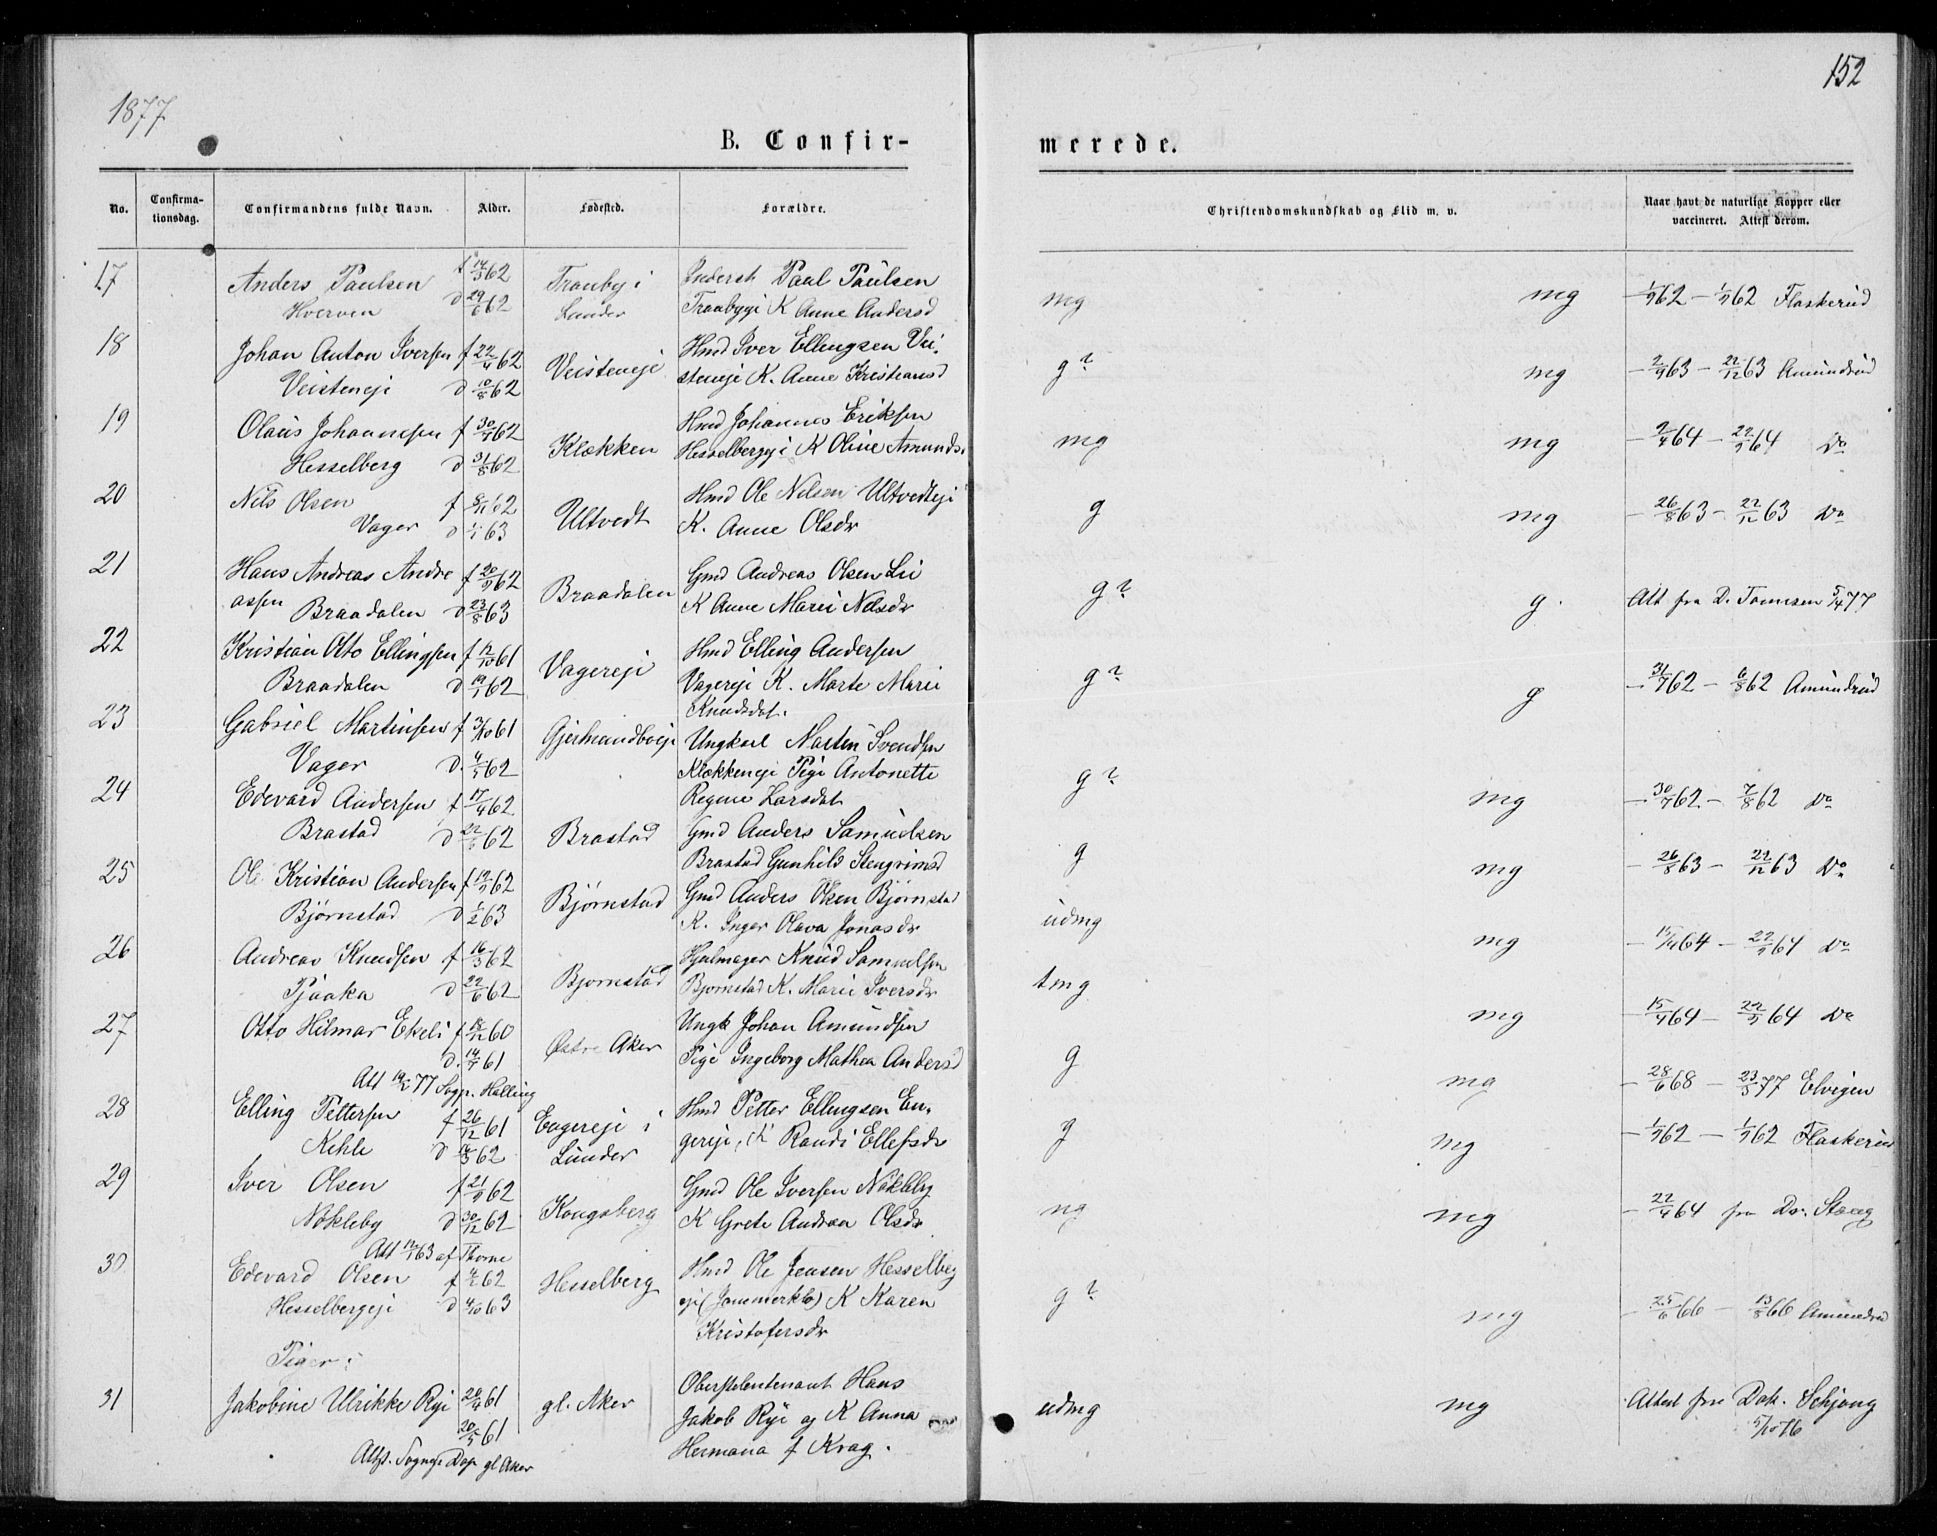 1877
152
B. Confir-
merede.
No.
Confirma-
tionsdag.
Confirmandens fulde Navn.
Alder.
Fødested.
Forældre.
Christendomskundskab og Flid m. v.
Naar havt de naturlige Kopper eller
vaccineret. Attest derom.
17 Anders Paulsen f 14/3 62 Tranby i Inderst Paul Paulsen mg mg 1/9 62 – 1/9 62 Flaskerud
Hverven d 29/6 62 Lunder Tranbyeji K Anne Andersd
18 Johan Anton Iversen f 22/4 62 Veisteneje Hmd Iver Ellingsen Vei- g? mg – 2/9 63 – 22/12 63 Amundrud
Veisteneje d 10/8 62 steneje K. Anne Kristiansd
19 Olaus Johannesen f 30/7 62 Klækken Hmd Johannes Eriksen mg mg – 2/4 64 – 22/9 64 Do
Hesselberg d 31/8 62 Hesselbergeje K Oline Amundsd.
20 Nils Olsen f 8/11 62 Ultvedt Hmd Ole Nilsen Ultvedteje g mg – 26/8 63 – 22/12 63 Do
Vager d 1/1 63 K. Anne Olsdr
21 Hans Andreas Andre f 20/9 62 Braadalen Gmd Andreas Olsen Lii g? g. Att fra D. Tomesen 5/4 77
assen Braadalen d 23/8 63 K Anne Marie Nilsdr
22 Kristian Otto Ellingsen f 12/10 61 Vagereje Hmd Elling Andersen g? g – 31/7 62 – 6/8 62 Amundrud
Braadalen d 19/1 62 Vagereje K. Marte Marie
Knudsdat.
23 Gabriel Martinsen f 3/10 61 Gjermundboeje Ungkarl Martin Svendsen g? mg – 30/7 62 – 7/8 62 Do
Vager d. 4/5 62 Klækkeneje Pige Antonette
Regine Larsdat
24 Edevard Andersen f 17/4 62 Brastad Gmd Anders Samuelsen g mg – 26/8 63 – 22/12 63 Do
Brastad d 22/6 62 Brastad Gunhild Stengrimsd
25 Ole Kristian Andersen f 19/9 62 Bjørnstad Gmd Anders Olsen Bjørnstad udmg mg – 15/4 64 – 22/9 64 Do
Bjørnstad d 1/2 63 K. Inger Olava Jonasdr
26 Andreas Knudsen f 16/3 62 Bjornstad Hjulmager Knud Samuelsen tmg mg – 15/4 64 – 22/9 64 Do
Pjaaka d 22/6 62 Bjornstad K. Marie Iversdr
27 Otto Hilmar Ekeli f 18/12 60 Østre Aker Ungk Johan Amundsen g mg – 28/6 68 – 23/5 77 Elvigen
d. 14/4 61 Pige Ingeborg Mathea Andersd
Att 19/2 77 Sogp. Halling
28 Elling Pettersen f 26/12 61 Engereje i Hmd Petter Ellingsen En- g mg – 1/9 62 – 1/9 62 Flaskerud
Kihle d 16/3 62 Lunder gereje, K Randi Ellefsdr
29 Iver Olsen f 21/9 62 Kongsberg Gmd Ole Iversen Nøkleby ng mg – 22/4 64 fra Dr. Stang
Nøkleby d 30/12 62 K Grete Andrea Olsdr
Att 12/1 63 af Thorne
30 Edevard Olsen f 4/2 62 Hesselberg Hmd Ole Jensen Hesselberg g? mg – 25/6 66 – 13/8 66 Amundrud
Hesselbergeje d 4/10 63 eje (Jammerklo) K Karen
Kristofersdr
Piger:
31 Jakobine Ulrikke Rye 20/4 61 gl. Aker Oberstleutenant Hans udmg mg Attest fra Dok. Schjøng
20/5 61 Jakob Rye og K Anna 5/10 76
Attst. Sognep Dop gl Aker Hermana f Krag.